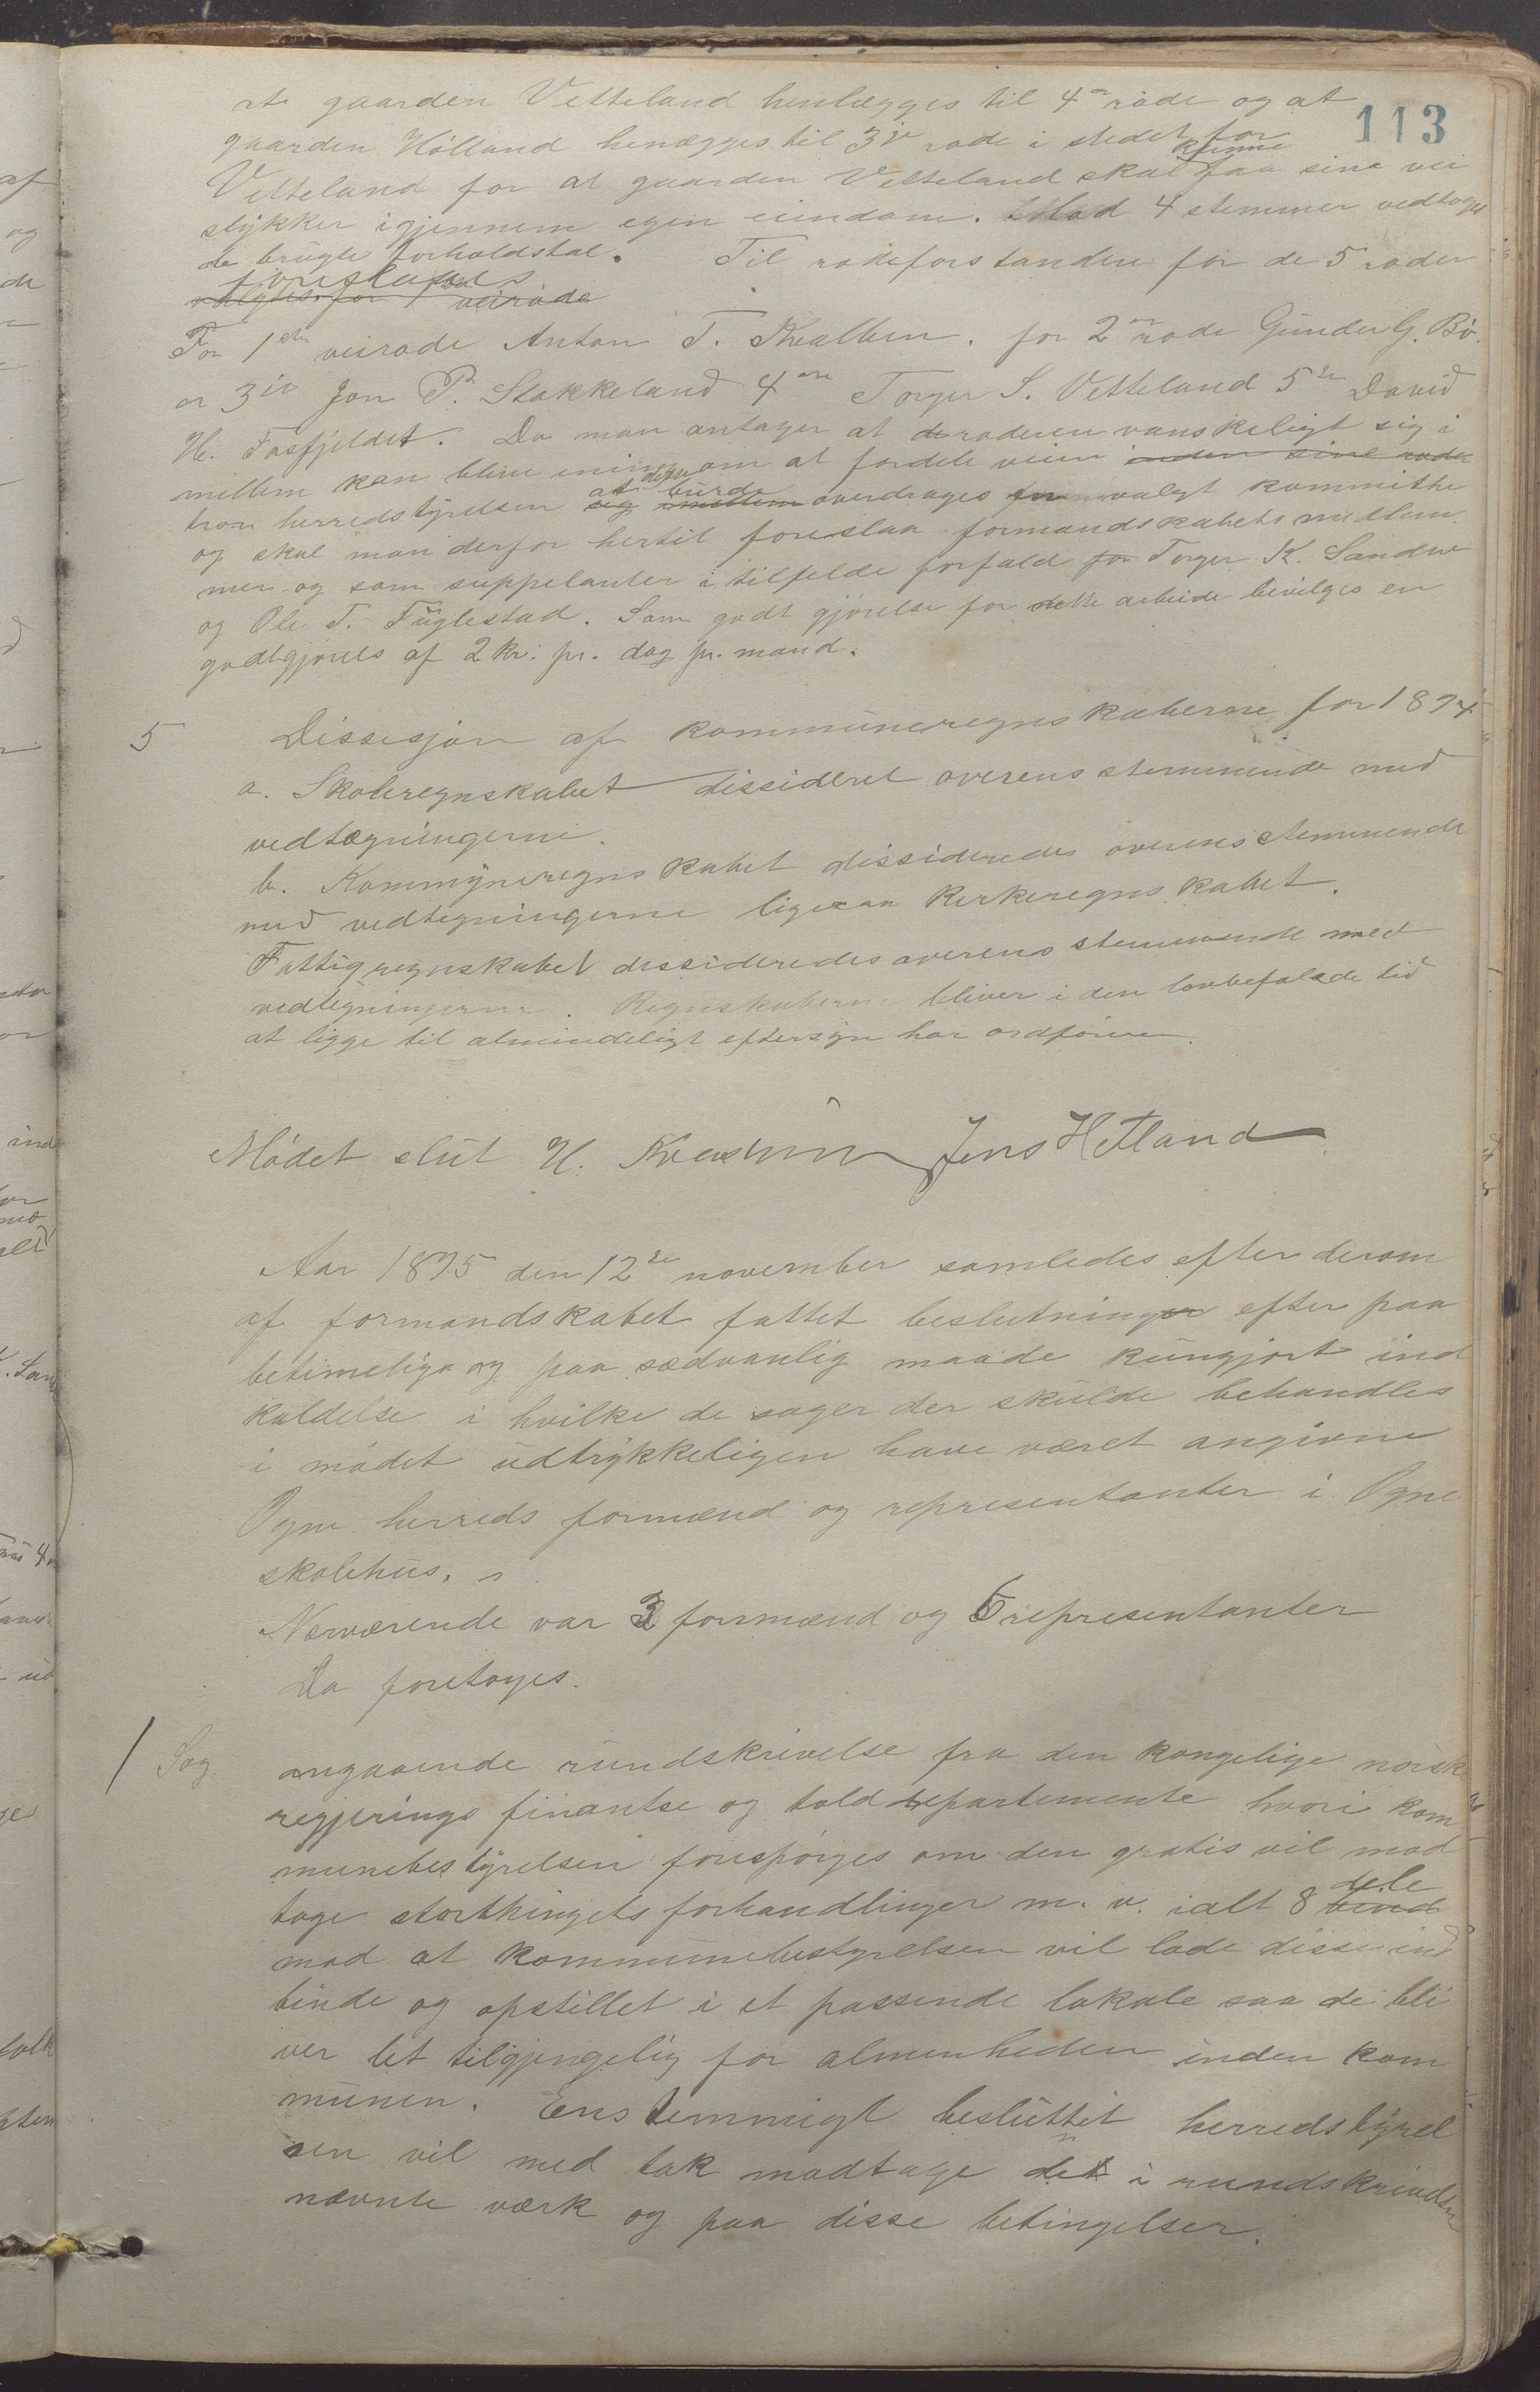 113
at gaarden Vetteland henlægges til 4de rode og at
gaarden Hölland henægges til 3die rode i stedet for
Vetteland for at gaarden Vetteland skal kunne faa sine vei
stykker igjennem egen eiendom. Mod 4 stemmer vedtoges
de brugte forholdstal. Til rodeforstandere for de 5 roder
foreslaaes
valgtes for 1ste veirode
For 1ste veirode Anton T. Kvalben. for 2den rode Gunder G. Bö.
or 3die Jon P. Stokkeland 4de Torger S. Vetteland 5te David
H. Fosfjeldet. Da man antager at de roderen vanskeligt sig i
millem kan blive enige om at fordele veien inden sine rode
tror herredstyrelsen at dette burde overdrages en valgt kommithe
og skal man derfor hertil foreslaa formandskabets medlem
mer og som suppelanter i tilfelde forfald for Torger K. Sandve
og Ole T. Fuglestad. Som godt gjörelse for dette arbeide bevilges en
godtgjörels af 2 kr. pr. dag pr. mand.
5 Dissesjon af kommuneregnskaberne for 1894
a. Skoleregnskabet dissideret overensstemmende med
vedtegningerne.
b. Kommuneregnskabet dissideredes overensstemmende
med vedtegningerne ligesaa Kirkeregnskabet.
Fattigregnskabet dessideredes overensstemmende med
vedtegningerne. Regnskaberne bliver i den lovbefalede tid
at ligge til almindeligt eftersyn hos ordförer.
Mödet slut H. Jens Hetland
Aar 1895 den 12te november samledes efter derom
af formandskabet fattet beslutninger efter paa
betimelige og paa sædvanlig maade kungjort ind
kaldelse i hvilke de sager der skulde behandles
i mödet udtrykkeligen have været angivne
Ogne herreds formænd og representanter i Ogne
skolehus.
Nærværende var 3 formænd og 6 representanter
Da foretoges.
1 Sag angaaende rundskrivelse fra den kongelige norsk
regjerings finantse og tolddepartemente hvori kom
munebestyrelsen forespörges om den gratis vil mod
tage storthingets forhandlinger m. v. ialt 8 bind dele
mod at kommunebestyrelsen vil lade disse ind
binde og opstillet i et passende lokale saa de bli
ver let tilgjengelig for almenheden inden kom
munen. Enstemmigt besluttet herredstyrel
sen vil med tak modtage det i rundskrivelsen
nævnte værk og paa disse betingelser.